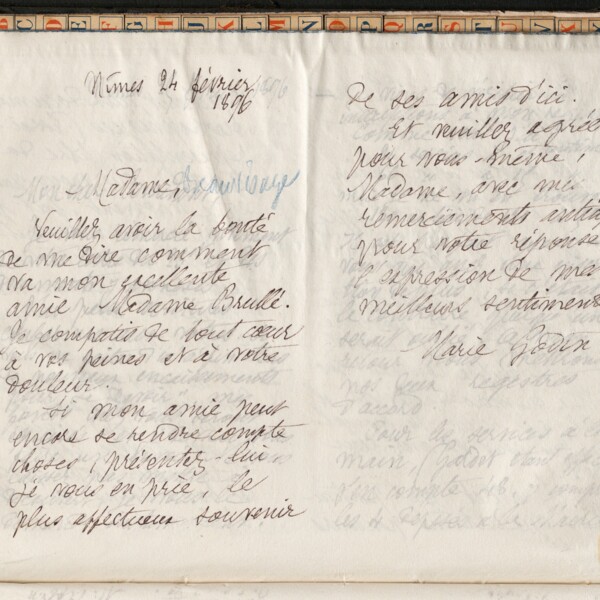 C D E F G H I J K L M N O P Q R S T U V W X
Nîmes 24 février
1896
Madame,
Veuillez avoir la bonté
de me dire comment
va mon excellente
amie Madame Brullé.
Je compatis de tout cœur
à vos peines et à votre
douleur.
Si mon amie peut
encore se rendre compte
choses, présentez-lui
je vous en prie, le
plus affectueux souvenir
de ses amis d'ici.
Et veuillez agrée
pour vous-même,
Madame, avec mes
remerciements antici
pour votre réponse
l'expression de mes
meilleurs sentiment
Marie Godin